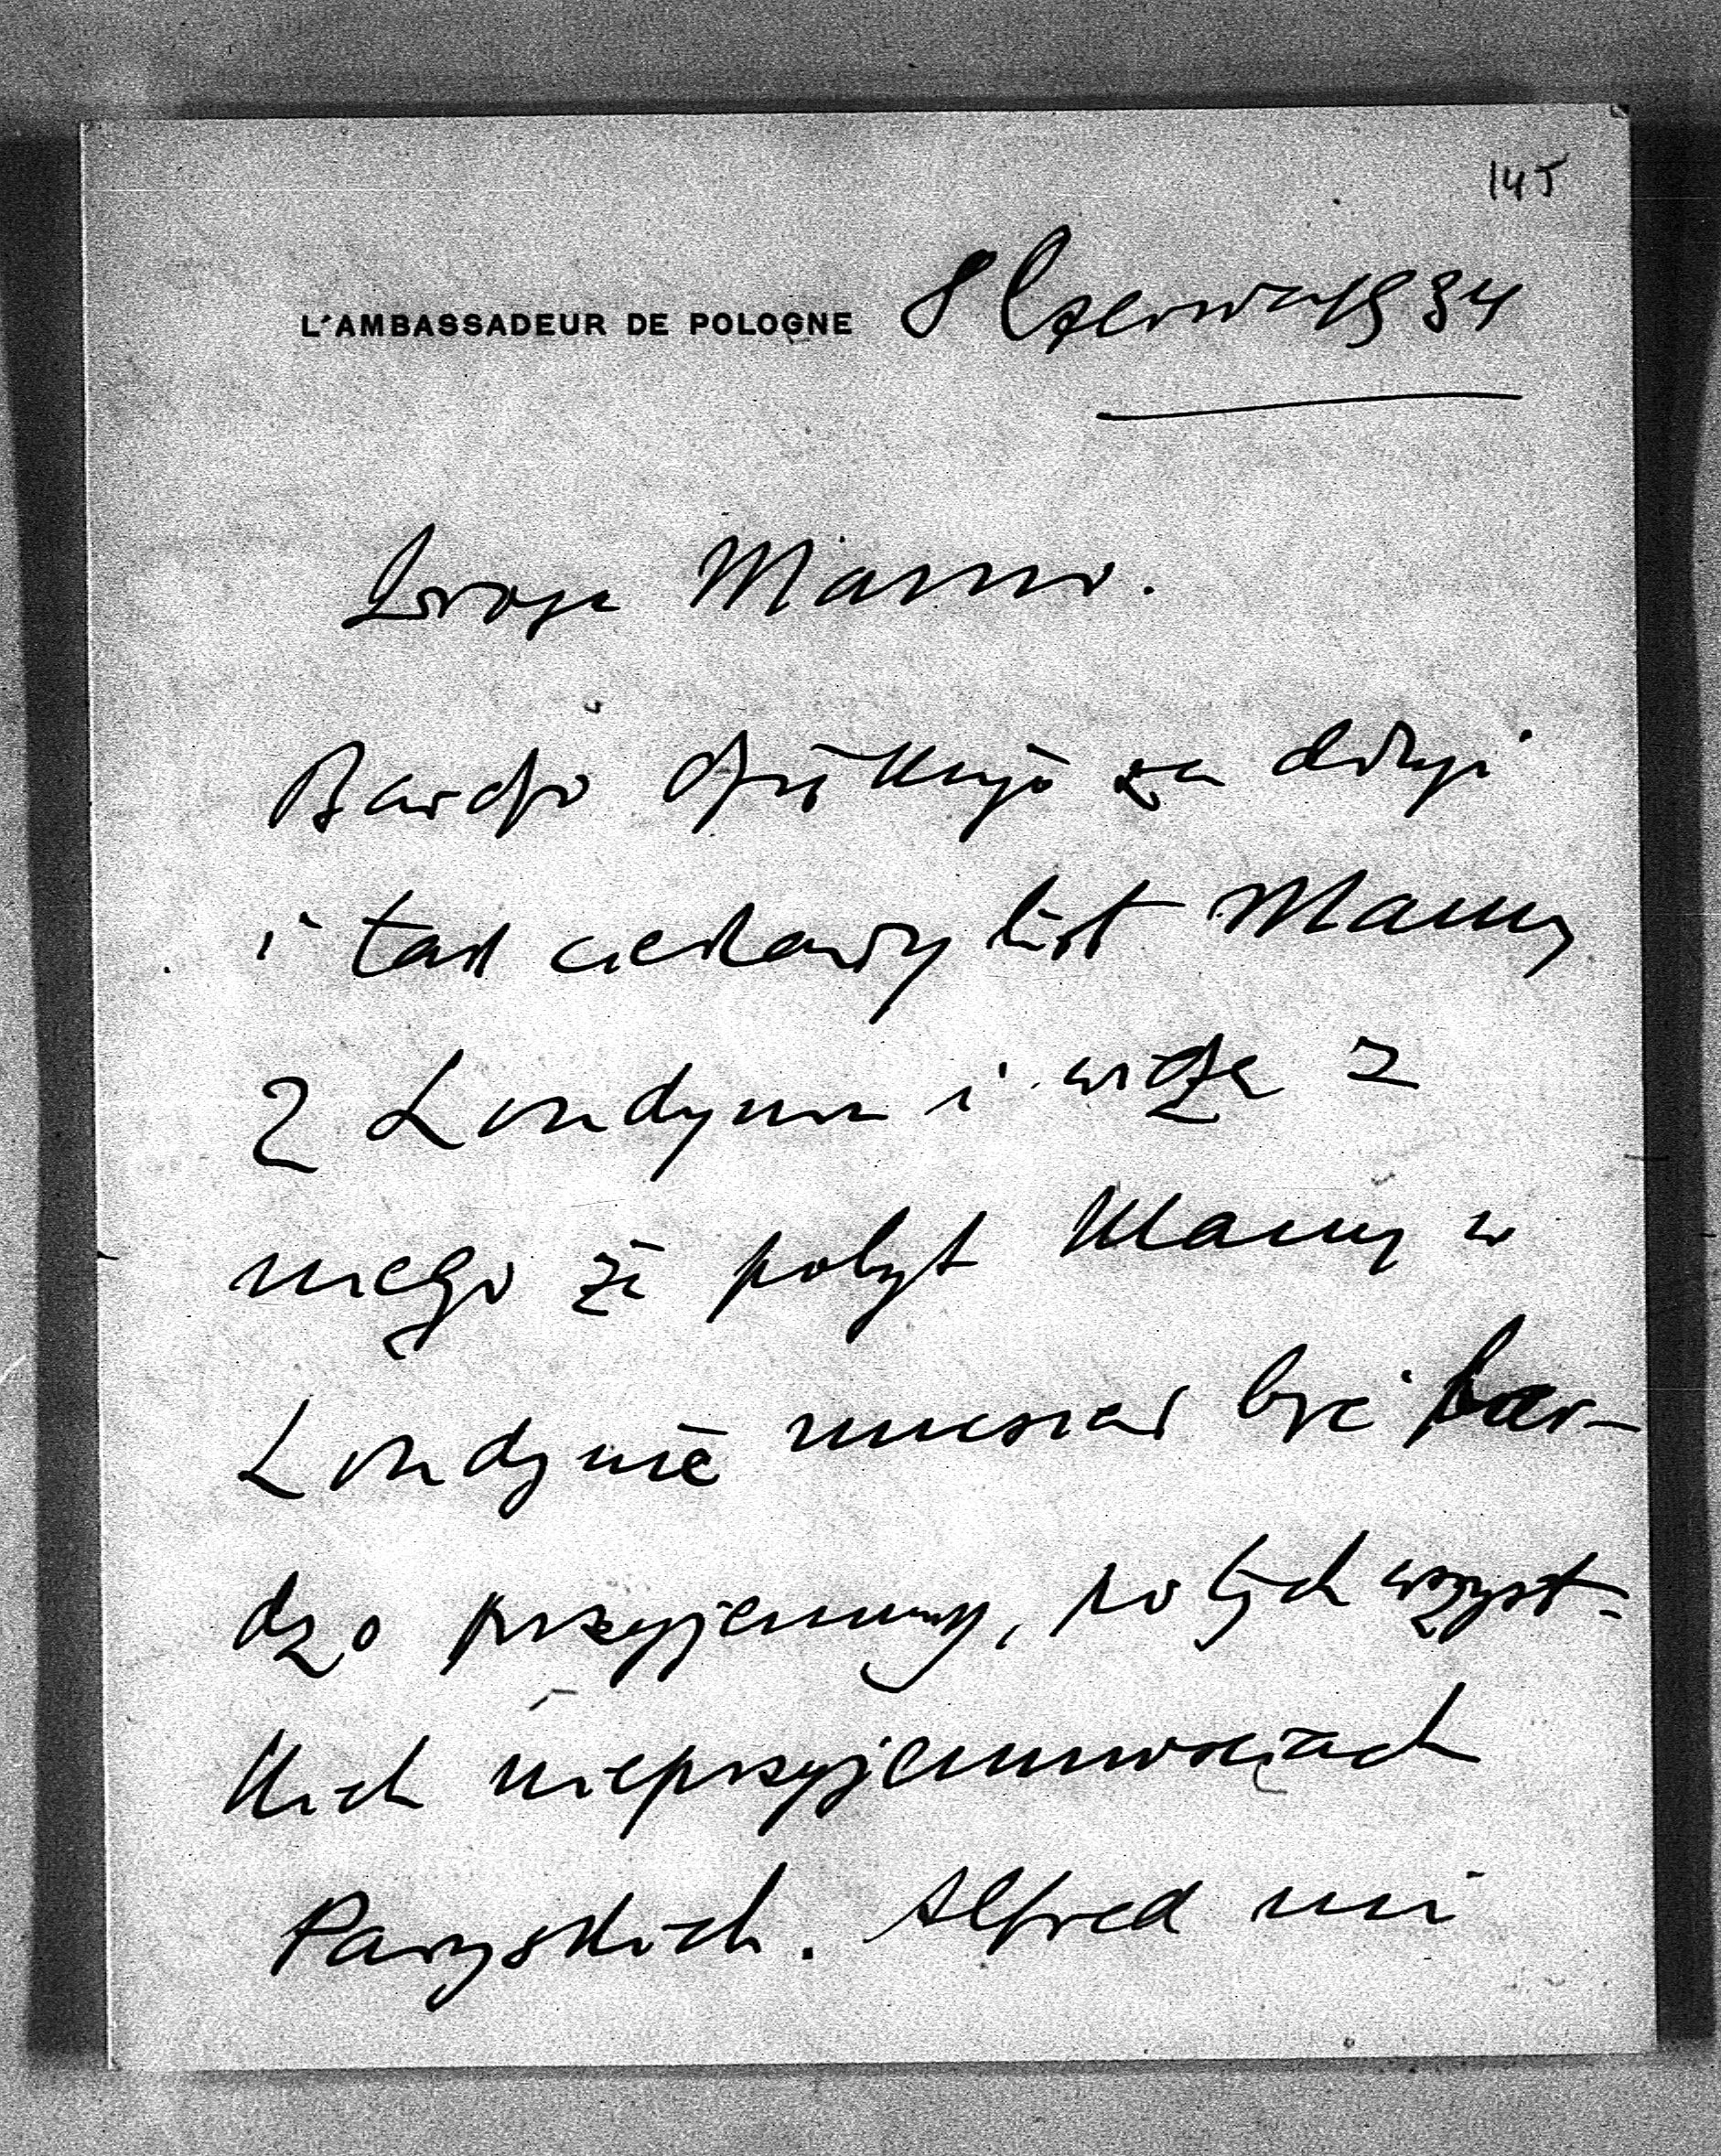 145
L'AMBASSADEUR DE POLOGNE 8 Czerwca 1934
Droga Mamo.
Bardzo dziękuję za długi
i tak ciekawy list Mamy
z Londynu i widzę z
niego że pobyt Mamy w
Londynie musiał być bar-
dzo przyjemny, po tych wszyst-
kich nieprzyjemnościach
Paryskich. Alfred mi